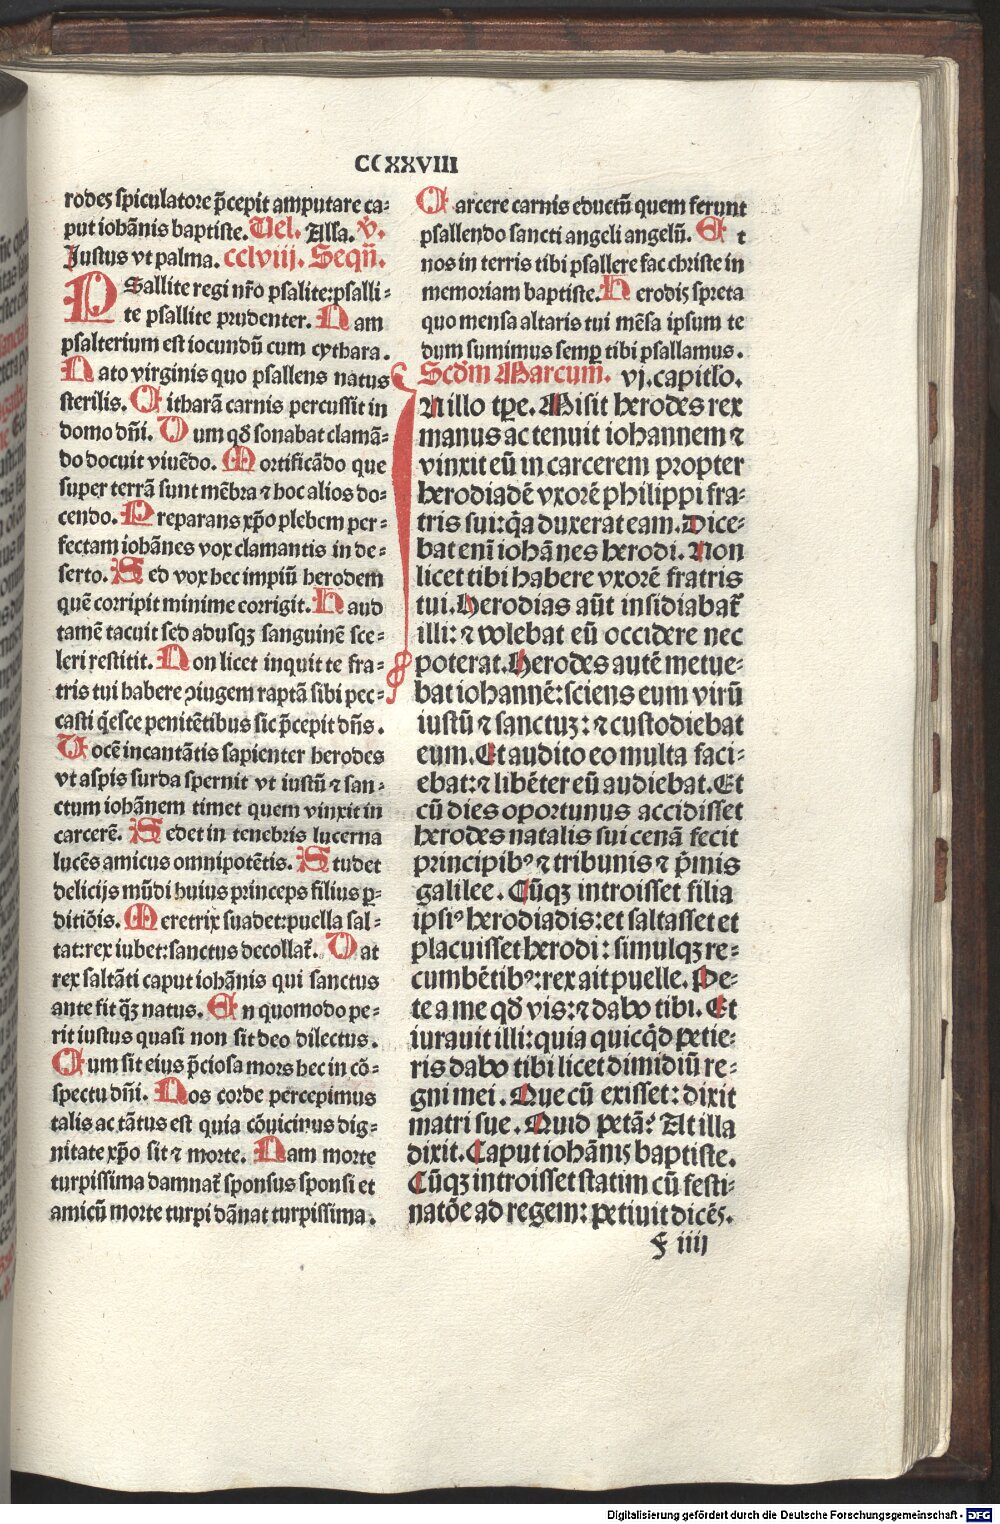 CCXXVIII
rodes spiculatore p̄cepit amputare ca⸗
put iohānis baptiste. Uel. Alla. v̄.
Justus vt palma. cclviij. Sequn̄.
PSallite regi nr̄o psalite:psalli⸗
te psallite prudenter. Nam
psalterium est iocundū cum cythara.
Nato virginis quo psallens natus
sterilis. Citharā carnis percussit in
domo dn̄i. Dum qd̄ sonabat clamā⸗
do docuit viuēdo. Mortificādo que
super terrā sunt mēbra ⁊ hoc alios do⸗
cendo. Preparans xp̄o plebem per⸗
fectam iohānes vox clamantis in de⸗
serto. Sed vox hec impiū herodem
quē corripit minime corrigit. Haud
tamē tacuit sed adusqꝫ sanguinē sce⸗
leri restitit. Non licet inquit te fra⸗
tris tui habere ꝯiugem raptā sibi pec⸗
casti q̇esce penitētibus sic p̄cepit dn̄s.
Uocē incantātis sapienter herodes
vt aspis surda spernit vt iustū ⁊ san⸗
ctum iohānem timet quem vinxit in
carcerē. Sedet in tenebris lucerna
lucēs amicus omnipotētis. Studet
delicijs mūdi huius princeps filius ꝑ⸗
ditiōis. Meretrix suadet:puella sal⸗
tat:rex iubet:sanctus decollat̄. Dat
rex saltāti caput iohānis qui sanctus
ante fit q̄ꝫ natus. En quomodo pe⸗
rit iustus quasi non sit deo dilectus.
Cum sit eius p̄ciosa mors hec in cō⸗
spectu dn̄i. Nos corde percepimus
talis ac tātus est quia cōuicinus dig⸗
nitate xp̄o sit ⁊ morte. Nam morte
turpissima damnat̄ sponsus sponsi et
amicū morte turpi dānat turpissima.
Carcere carnis eductū quem ferunt
psallendo sancti angeli angelū. Et
nos in terris tibi psallere fac christe in
memoriam baptiste. Herodis spreta
quo mensa altaris tui mēsa ipsum te
dum sumimus semꝑ tibi psallamus.
Scd̄m Marcum. vj. capitl̄o.
IN illo tꝑe. Misit herodes rex
manus ac tenuit iohannem ⁊
vinxit eū in carcerem propter
herodiadē vxorē philippi fra⸗
tris sui:q̄a duxerat eam. Dice⸗
bat enī iohānnes herodi. Non
licet tibi habere vxorē fratris
tui. Herodias aūt insidiabat̄
illi:⁊ volebat eū occidere nec
poterat. Herodes autē metue⸗
bat iohannē:sciens eum virū
iustū ⁊ sanctuꝫ:⁊ custodiebat
eum. Et audito eo multa faci⸗
ebat:⁊ libēter eū audiebat. Et
cū dies oportunus accidisset
herodes natalis sui cenā fecit
principibꝰ ⁊ tribunis ⁊ p̄mis
galilee. Cūqꝫ introisset filia
ipsiꝰ herodiadis:et saltasset et
placuisset herodi:simulqꝫ re⸗
cumbētibꝰ:rex ait puelle. Pe⸗
te a me qd̄ vis:⁊ dabo tibi. Et
iurauit illi:quia quicq̇d petie⸗
ris dabo tibi licet dimidiū re⸗
gni mei. Que cū exisset:dixit
matri sue. Quid petā? At illa
dixit. Caput iohānis baptiste.
Cūqꝫ introisset statim cū festi⸗
natōe ad regem:petiuit dicēs.
f iiij
Digitalisierung gefördert durch die Deutsche Forschungsgemeinschaft - DFG